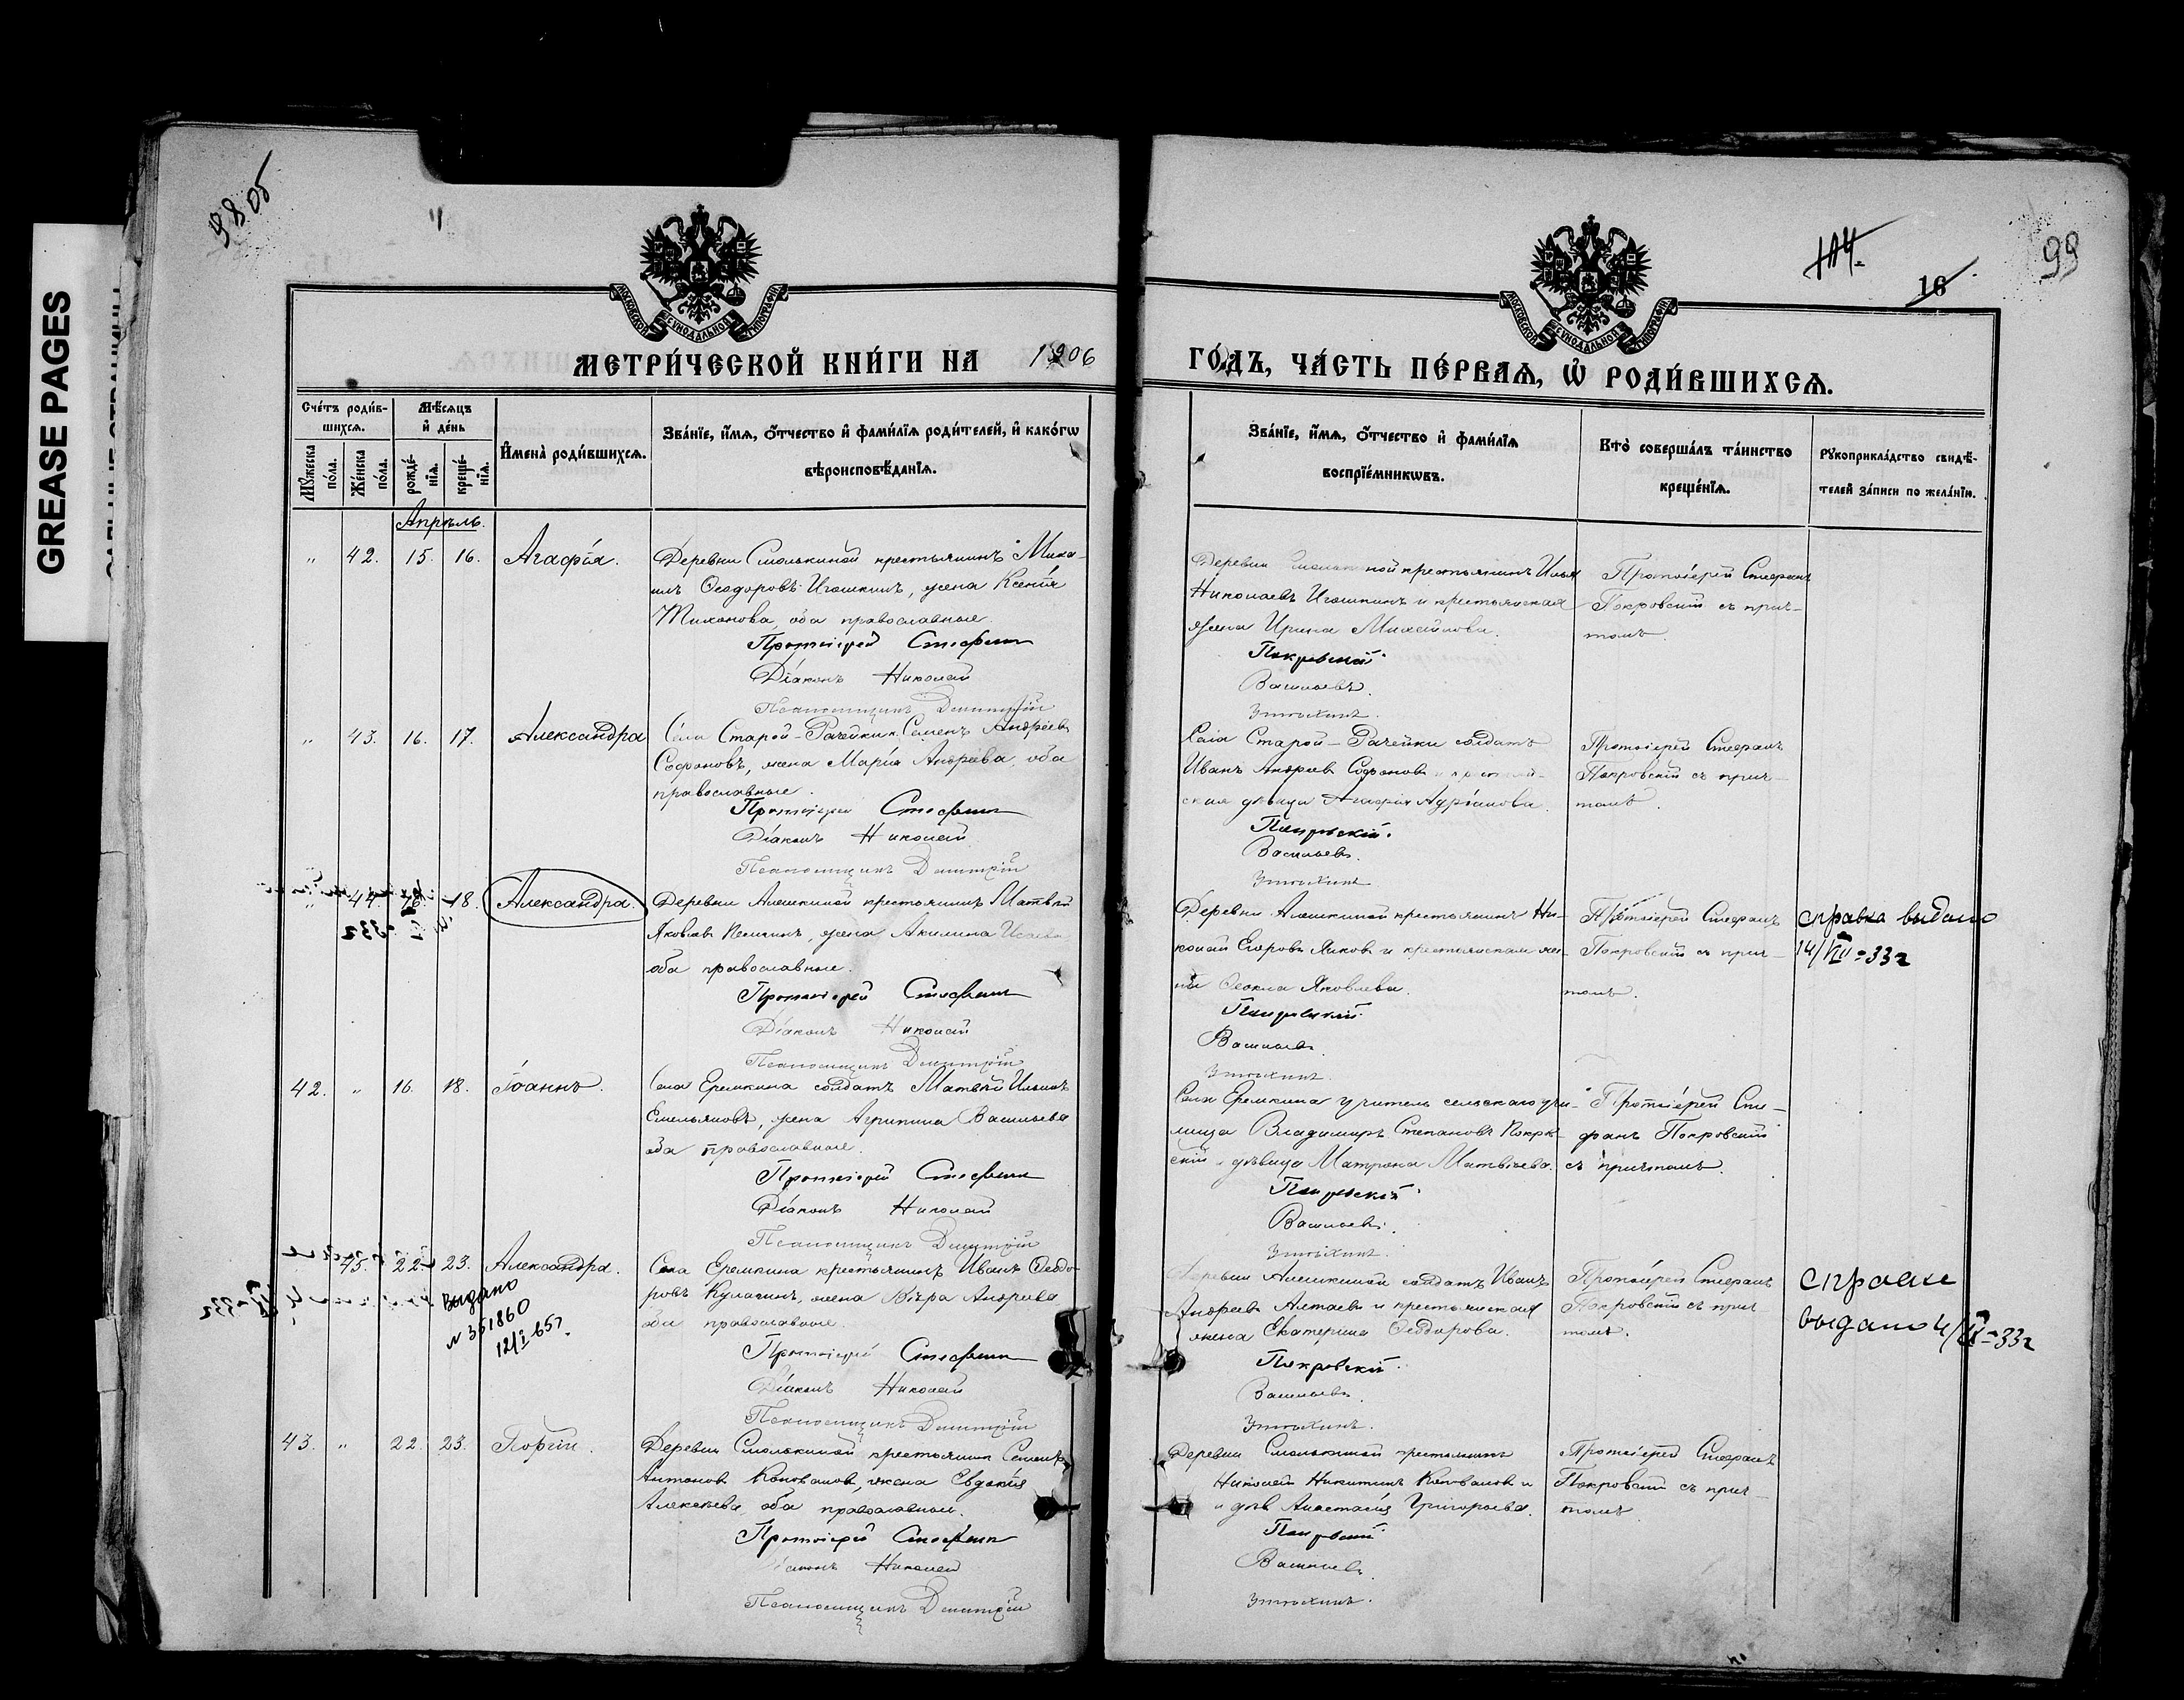 GREASE PAGES
98 об
99
16
МОСКОВСКОЙ СѴНОДАЛЬНОЙ ТИПОГРАФІИ
МОСКОВСКОЙ СѴНОДАЛЬНОЙ ТИПОГРАФІИ
МЕТРИ́ЧЕСКОЙ КНИ́ГИ НА 1906
ГО́ДЪ, ЧА́СТЬ ПЕ́РВАѦ, Ѡ҆ РОДИ́ВШИХСѦ.
Сче́тъ роди́в-
шихсѧ.
Мꙋ́жеска по́ла.
Же́нска по́ла.
Мѣ́сѧцъ
и҆ де́нь
рожде́-
нїѧ.
креще́-
нїѧ.
И҆мена̀ роди́вшихсѧ.
Зва́нїе, и҆́мѧ, ѻ҆́тчество и҆ фами́лїѧ роди́телей, и҆ како́гѡ
вѣроисповѣ́данїѧ.
Зва́нїе, и҆́мѧ, ѻ҆́тчество и҆ фами́лїѧ
воспрїе́мникѡвъ.
Кто̀ соверша́лъ та́инство
креще́нїѧ.
Рꙋкоприкла́дство свидѣ́-
телей за́писи по жела́нїю.
Апрѣль.
" 42. 15. 16. Агафія.
Деревни Смолькиной крестьянинъ Миха-
илъ Ѳеодоровъ Игошкинъ, жена Ксенія
Тихонова, оба православные.
Протоіерей Стефанъ
Діаконъ Николай
Псаломщикъ Димитрій
Деревни крестьянинъ Илья
Николаевъ Игошкинъ и крестьянская
жена Ирина Михайлова.
Покровскій.
Васильевъ.
Утѣхинъ.
Протоіерей Стефанъ
Покровскій съ прич-
томъ.
" 43. 16. 17. Александра
Села Старой-Рачейки к. Семенъ Андреевъ
Софоновъ, жена Марія Андреева, оба
православные.
Протоіерей Стефанъ
Діаконъ Николай
Псаломщикъ Димитрій
Села Старой-Рачейки солдатъ
Иванъ Андреевъ Софоновъ и
ская дѣвица Адріанова.
Покровскій.
Васильевъ.
Утѣхинъ
Протоіерей Стефанъ
Покровскій съ прич-
томъ.
" 44 18. Александра.
Деревни Алешкиной крестьянинъ Матвѣй
Яковлевъ, жена Акилина Исаева
оба православные.
Протоіерей Стефанъ
Діаконъ Николай
Псаломщикъ Димитрій
Деревни Алешкиной крестьянинъ Ни-
колай Егоровъ и крестьянская же-
на Ѳекла Яковлева.
Покровскій.
Васильевъ.
Утѣхинъ.
Протоіерей Стефанъ
Покровскій съ прич-
томъ.
справка выдано
14/VII-33г
42. " 16. 18. Іоаннъ.
Села Еремкина солдатъ Матвѣй Ильинъ
Емельяновъ, жена Агрипина Васильева
оба православные.
Протоіерей Стефанъ
Діаконъ Николай
Псаломщикъ Димитрій
Села Еремкина учитель сельскаго учи-
лища Владимиръ Степановъ Покров-
скій и дѣвица Матрона Матвѣева.
Покровскій.
Васильевъ.
Утѣхинъ.
Протоіерей Сте-
фанъ Покровскій
съ причтомъ.
45. 22. 23. Александра.
Выдано
N 351860
12/I-65г.
Села Еремкина крестьянинъ Иванъ Ѳеодо-
ровъ Кулагинъ, жена Вѣра Андреева
оба православные.
Протоіерей Стефанъ
Діаконъ Николай
Псаломщикъ Димитрій
Деревни Алешкиной солдатъ Иванъ
Андреевъ Алтаевъ и крестьянская
жена Екатерина Ѳеодорова.
Покровскій.
Васильевъ.
Утѣхинъ.
Протоіерей Стефанъ
Покровскій съ прич-
томъ.
справке
выдано 4/IX-33г
43. " 22. 23. Георгій.
Деревни Смолькиной крестьянинъ Семенъ
Антоновъ Коноваловъ, жена Евдокія
Алексѣева, оба православные.
Протоіерей Стефанъ
Діаконъ Николай
Псаломщикъ Димитрій
Деревни Смолькиной крестьянинъ
Николай Никитинъ Коноваловъ и
дѣв. Анастасія Григорьева.
Покровскій
Васильевъ.
Утѣхинъ.
Протоіерей Стефанъ
Покровскій съ прич-
томъ